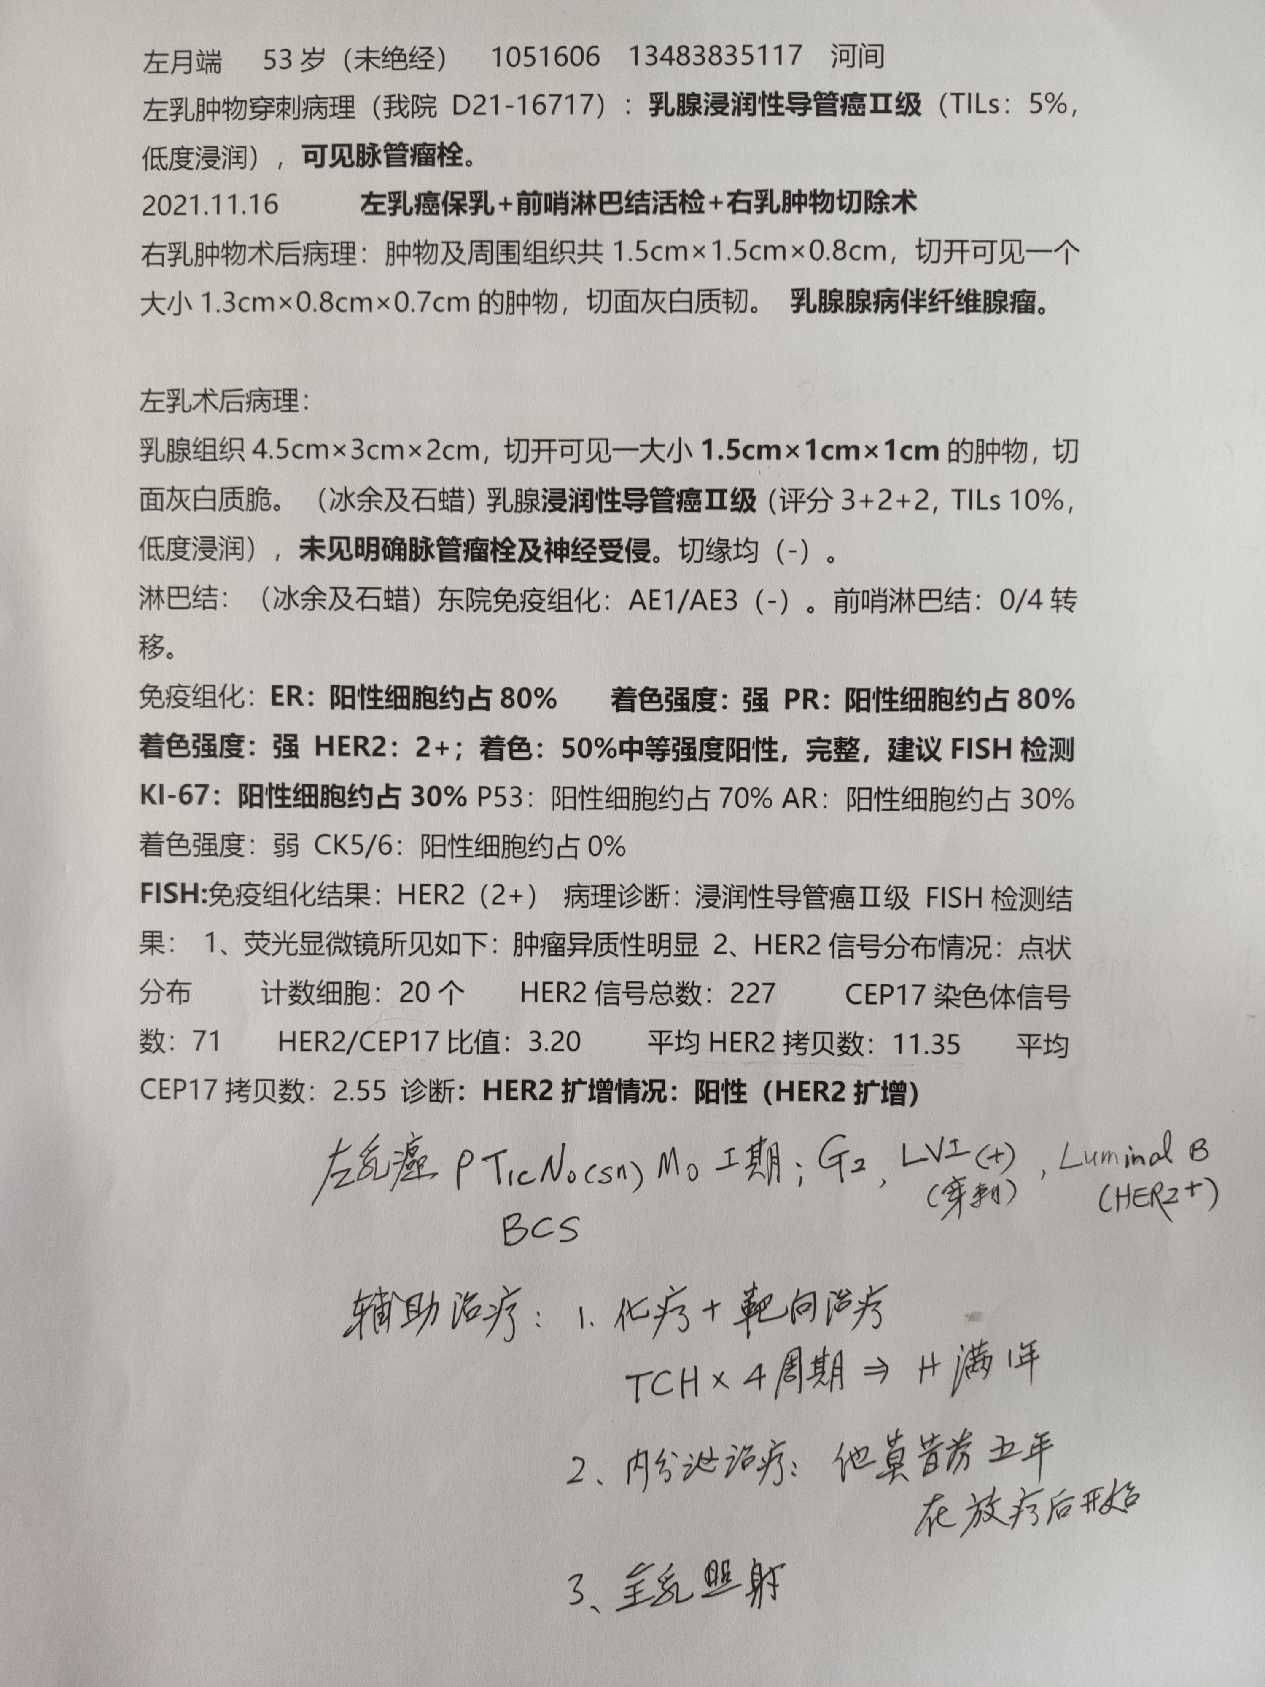 左月端 53岁（未绝经） 1051606 13483835117 河间
左乳肿物穿刺病理（我院 D21-16717）：乳腺浸润性导管癌Ⅱ级（TILs：5%，
低度浸润），可见脉管瘤栓。
2021.11.16 左乳癌保乳+前哨淋巴结活检+右乳肿物切除术
右乳肿物术后病理：肿物及周围组织共 1.5cm×1.5cm×0.8cm，切开可见一个
大小 1.3cm×0.8cm×0.7cm 的肿物，切面灰白质韧。 乳腺腺病伴纤维腺瘤。
左乳术后病理：
乳腺组织 4.5cm×3cm×2cm，切开可见一大小 1.5cm×1cm×1cm 的肿物，切
面灰白质脆。（冰余及石蜡）乳腺浸润性导管癌Ⅱ级（评分 3+2+2，TILs 10%，
低度浸润），未见明确脉管瘤栓及神经受侵。切缘均（-）。
淋巴结：（冰余及石蜡）东院免疫组化：AE1/AE3（-）。前哨淋巴结：0/4 转
移。
免疫组化：ER：阳性细胞约占 80% 着色强度：强 PR：阳性细胞约占 80%
着色强度：强 HER2：2+；着色：50%中等强度阳性，完整，建议 FISH 检测
KI-67：阳性细胞约占 30% P53：阳性细胞约占 70% AR：阳性细胞约占 30%
着色强度：弱 CK5/6：阳性细胞约占 0%
FISH:免疫组化结果：HER2（2+） 病理诊断：浸润性导管癌Ⅱ级 FISH 检测结
果： 1、荧光显微镜所见如下：肿瘤异质性明显 2、HER2 信号分布情况：点状
分布 计数细胞：20 个 HER2 信号总数：227 CEP17 染色体信号
数：71 HER2/CEP17 比值：3.20 平均 HER2 拷贝数：11.35 平均
CEP17 拷贝数：2.55 诊断：HER2 扩增情况：阳性（HER2 扩增）
左乳癌 pT1cN0(sn)M0 I期；G2，LVI(+)，Luminal B
(穿刺) (HER2+)
BCS
辅助治疗：1、化疗+靶向治疗
TCH×4周期⇒H满1年
2、内分泌治疗：他莫昔芬五年
在放疗后开始
3、全乳照射